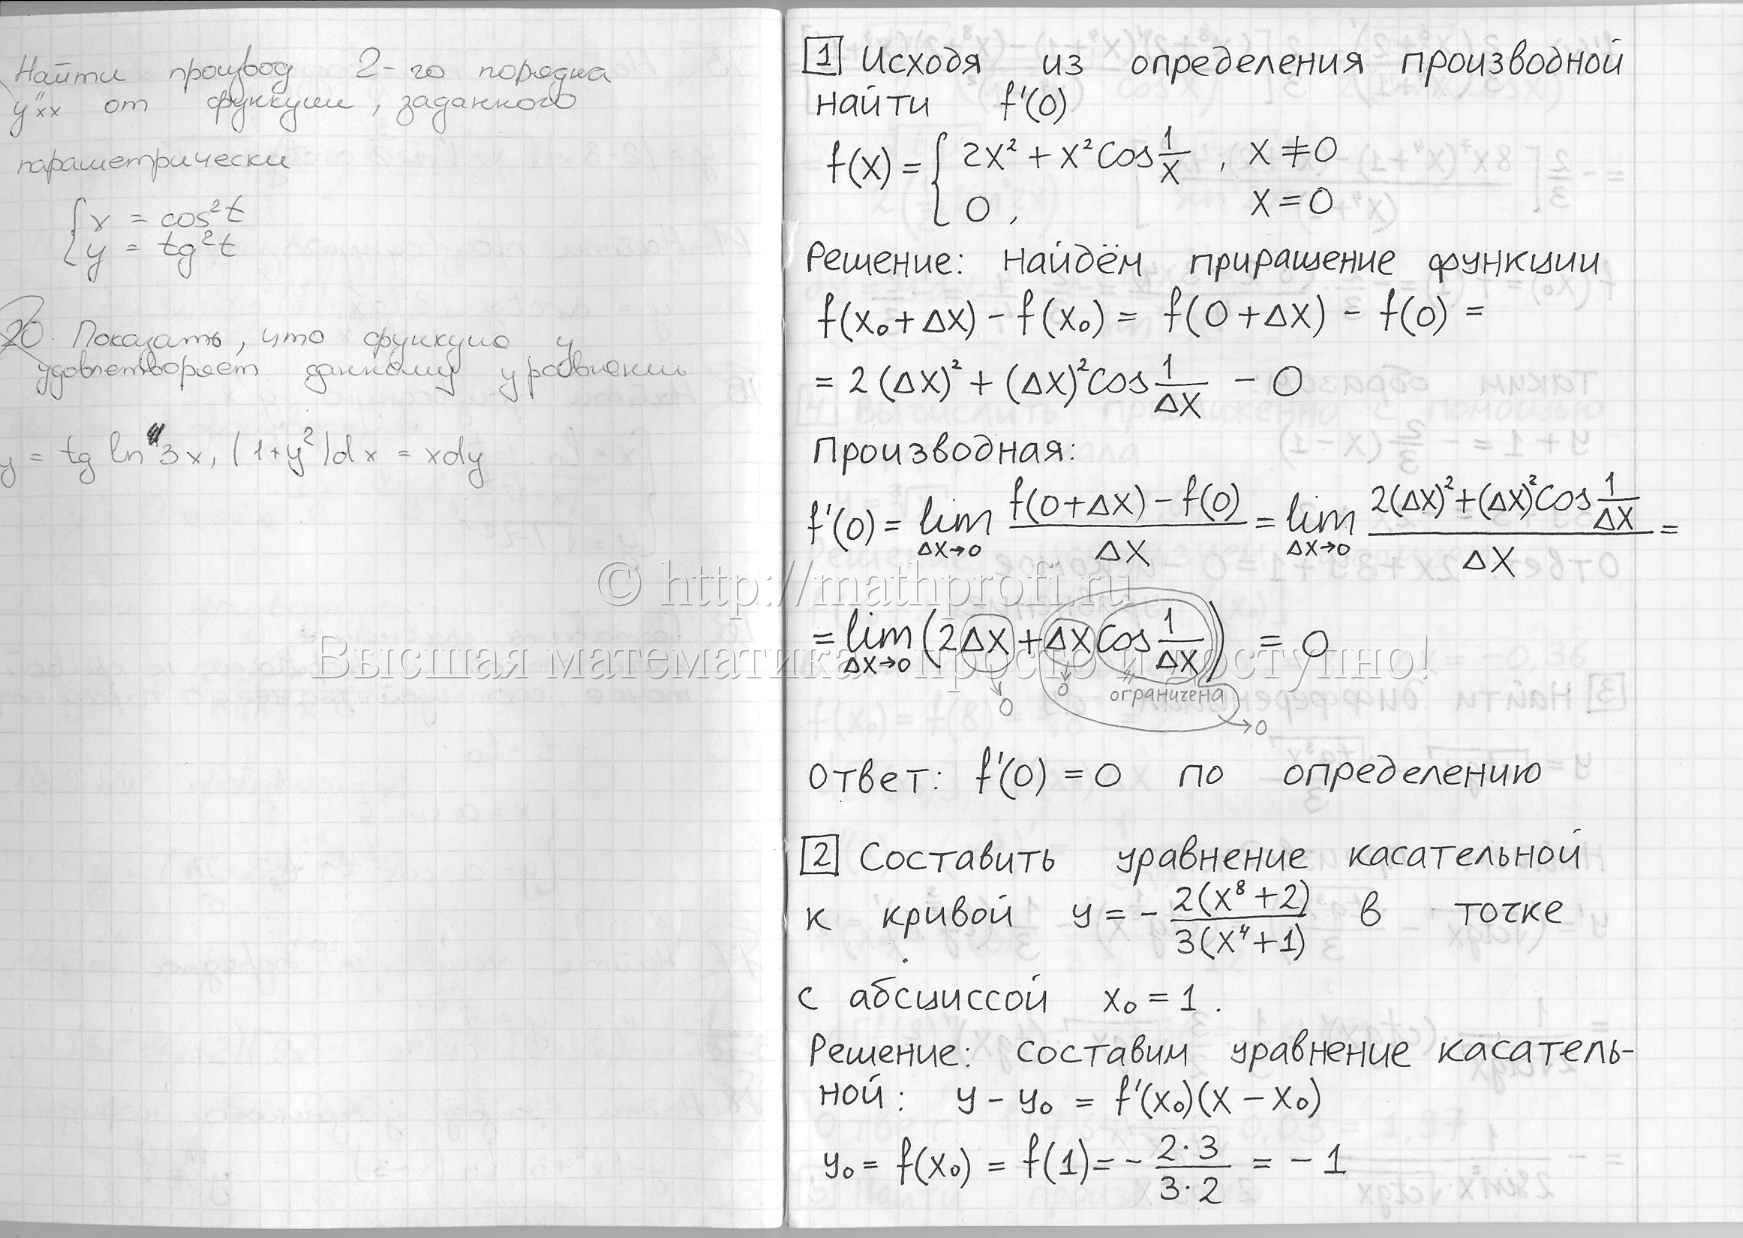 Найти производ 2-го порядка
y''xx от функции, заданного
параметрически
{ x = cos²t
{ y = tg²t
20. Показать, что функция y
удовлетворяет данному уравнению
y = tg ln 3x, (1+y²)dx = xdy
1 Исходя из определения производной
найти f'(0)
f(x) = { 2x² + x² cos 1/x , x ≠ 0
0 , x = 0
Решение: найдём приращение функции
f(x₀+Δx) - f(x₀) = f(0+Δx) - f(0) =
= 2(Δx)² + (Δx)² cos 1/Δx - 0
Производная:
f'(0) = lim Δx→0 (f(0+Δx) - f(0))/Δx = lim Δx→0 (2(Δx)² + (Δx)² cos 1/Δx)/Δx =
© http://mathprofi.ru
= lim Δx→0 (2Δx + Δx cos 1/Δx) = 0
Высшая математика – просто и доступно!
0 0 ограничена
0
Ответ: f'(0) = 0 по определению
2 Составить уравнение касательной
к кривой y = - 2(x⁸+2)/3(x⁴+1) в точке
с абсциссой x₀ = 1.
Решение: составим уравнение касатель-
ной: y - y₀ = f'(x₀)(x - x₀)
y₀ = f(x₀) = f(1) = - 2·3/3·2 = -1